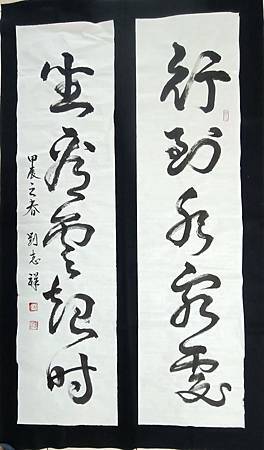 行到水穷处
坐看云起时
甲辰之春 刘志祥